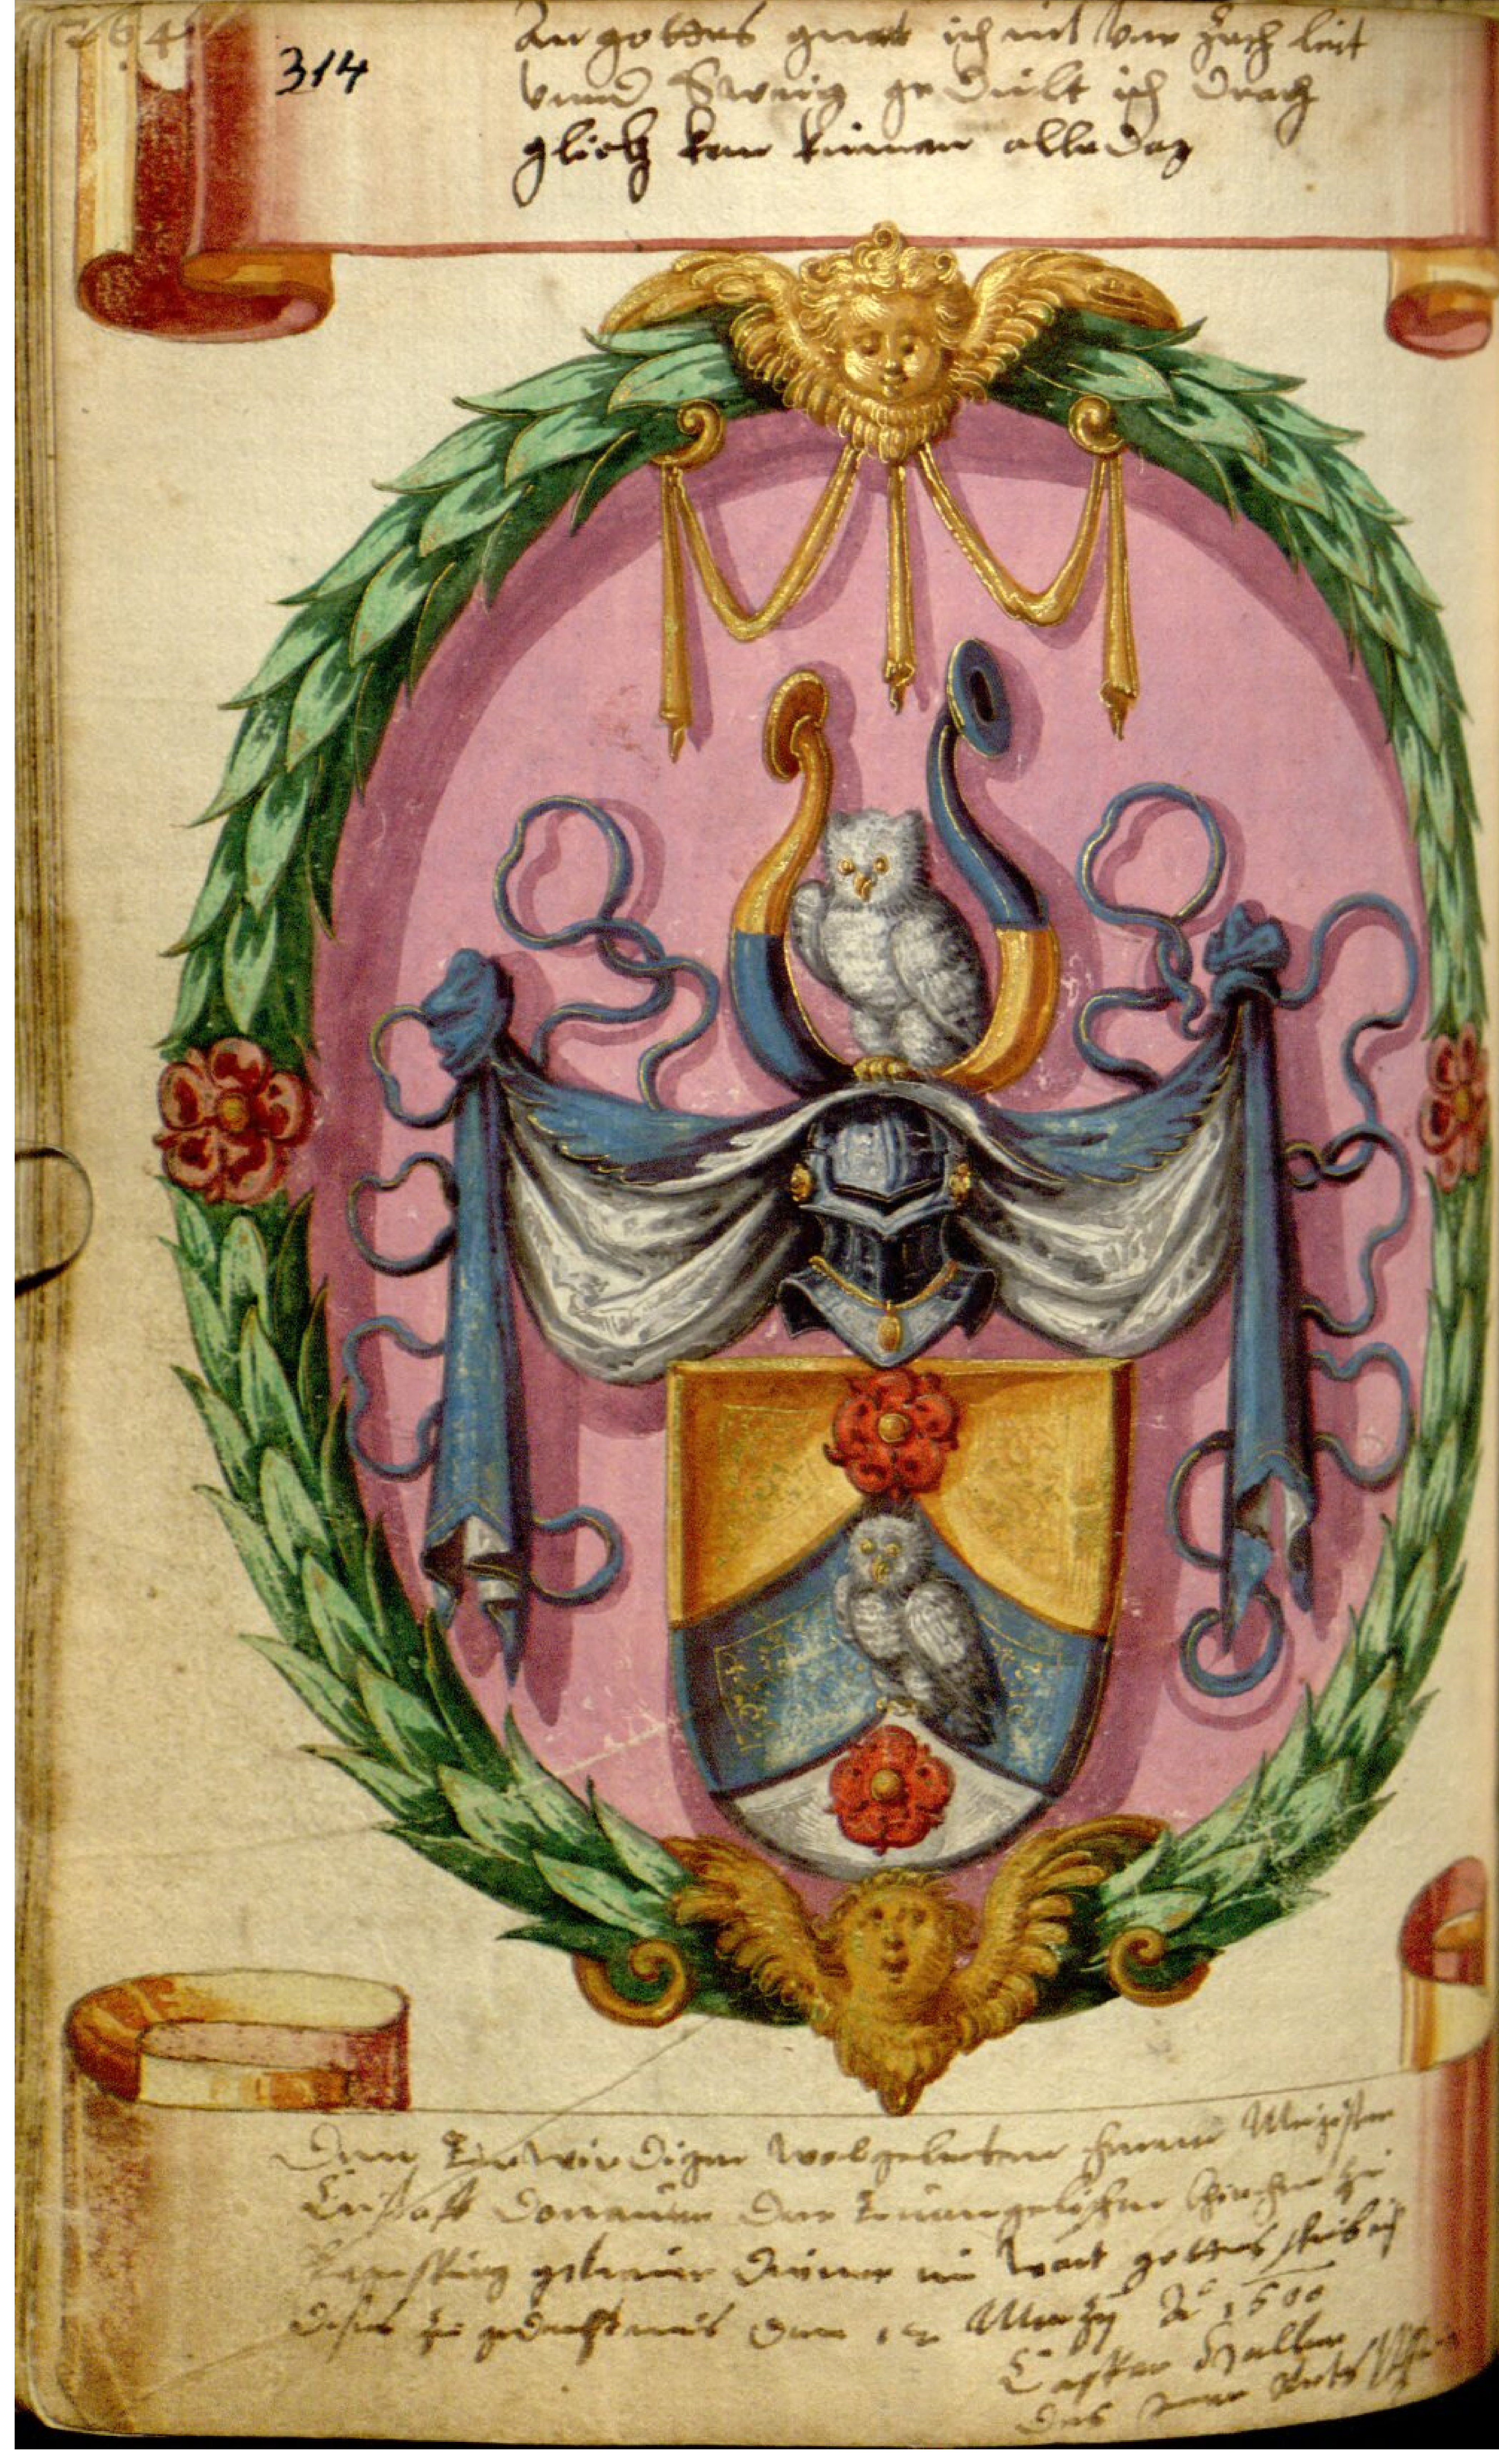 264
314
An gottes gnat ich nit verzach
vnnd gedult ich drach
glick kan kumen alle dag
Dem Erwirdigen wolgelerten herrn Magister
Cristoff Donauer der Euangelischen kirchen zu
Regenspurg getreuer diener im wort gottes schrib ich
dises zu gedechtnus den 12 Marzy Aº 1600
Caspar Haller
des Rats